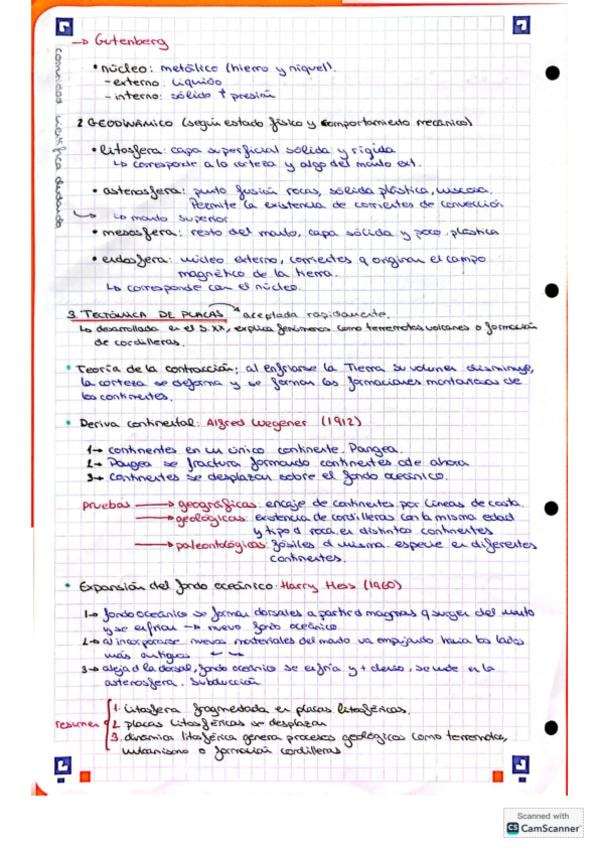 → Gutenberg
• núcleo: metálico (hierro y níquel).
- externo: líquido
- interno: sólido ↑ presión
2 GEODINÁMICO (según estado físico y comportamiento mecánico)
• litosfera: capa superficial sólida y rígida
↳ corresponde a la corteza y algo del manto ext.
• astenosfera: punto fusión rocas, sólida plástica, viscosa.
Permite la existencia de corrientes de convección
↳ manto superior
• mesosfera: resto del manto, capa sólida y poco plástica
• endosfera: núcleo externo, corrientes q originan el campo
magnético de la tierra.
↳ corresponde con el núcleo.
3. TECTÓNICA DE PLACAS → aceptada rapidamente.
↳ desarrollada en el S.XX, explica fenómenos como terremotos volcanes o formación
de cordilleras.
• Teoría de la contracción: al enfriarse la Tierra su volumen disminuye,
la corteza se deforma y se forman las formaciones montañosas de
los continentes.
• Deriva continental: Alfred Wegener (1912)
1→ continentes en un único continente. Pangea.
2→ Pangea se fractura formando continentes de ahora
3→ continentes se desplazan sobre el fondo oceánico.
pruebas → geográficas: encaje de continentes por líneas de costa.
→ geológicas: existencia de cordilleras con la misma edad
y tipo d roca en distintos continentes
→ paleontológicas: fósiles d misma especie en diferentes
continentes.
• Expansión del fondo oceánico. Harry Hess (1960)
1→ fondo oceánico se forman dorsales a partir d magmas q surgen del manto
y se enfrian → nuevo fondo oceánico.
2→ al incorporarse nuevos materiales del manto va empujando hacia los lados
más antiguos ← →
3→ aleja d la dorsal, fondo oceánico se enfría y + denso, se unde en la
astenosfera. Subducción
resumen
1. Litosfera fragmentada en placas litosféricas.
2. placas litosféricas se desplazan
3. dinámica litosférica genera procesos geológicos como terremotos,
vulcanismo o formación cordilleras
Scanned with
CS CamScanner